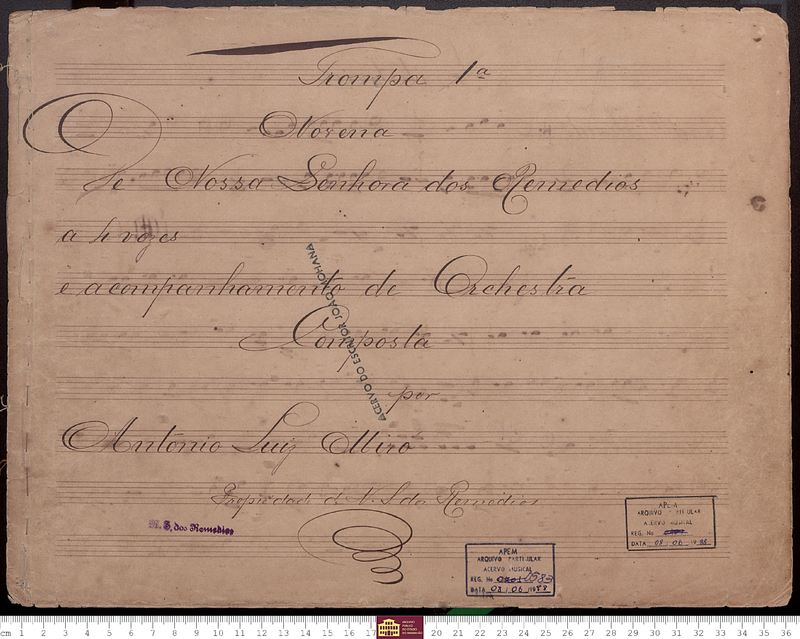 Trompa 1ª
Novena
De Nossa Senhora dos Remedios
a 4 vozes
e acompanhamento de Orchestra
Composta
por
Antonio Luiz Miró
Propriedade de N. S. dos Remedios
ACERVO DO ESCRITOR JOÃO MOHANA
N. S. dos Remedios
APEM
ARQUIVO PARTICULAR
ACERVO MUSICAL
REG. No
DATA 08 06 19
APEM
ARQUIVO PARTICULAR
ACERVO MUSICAL
REG. No 0583
DATA 08 06 19
cm 1 2 3 4 5 6 7 8 9 10 11 12 13 14 15 16 17 20 21 22 23 24 25 26 27 28 29 30 31 32 33 34 35 36